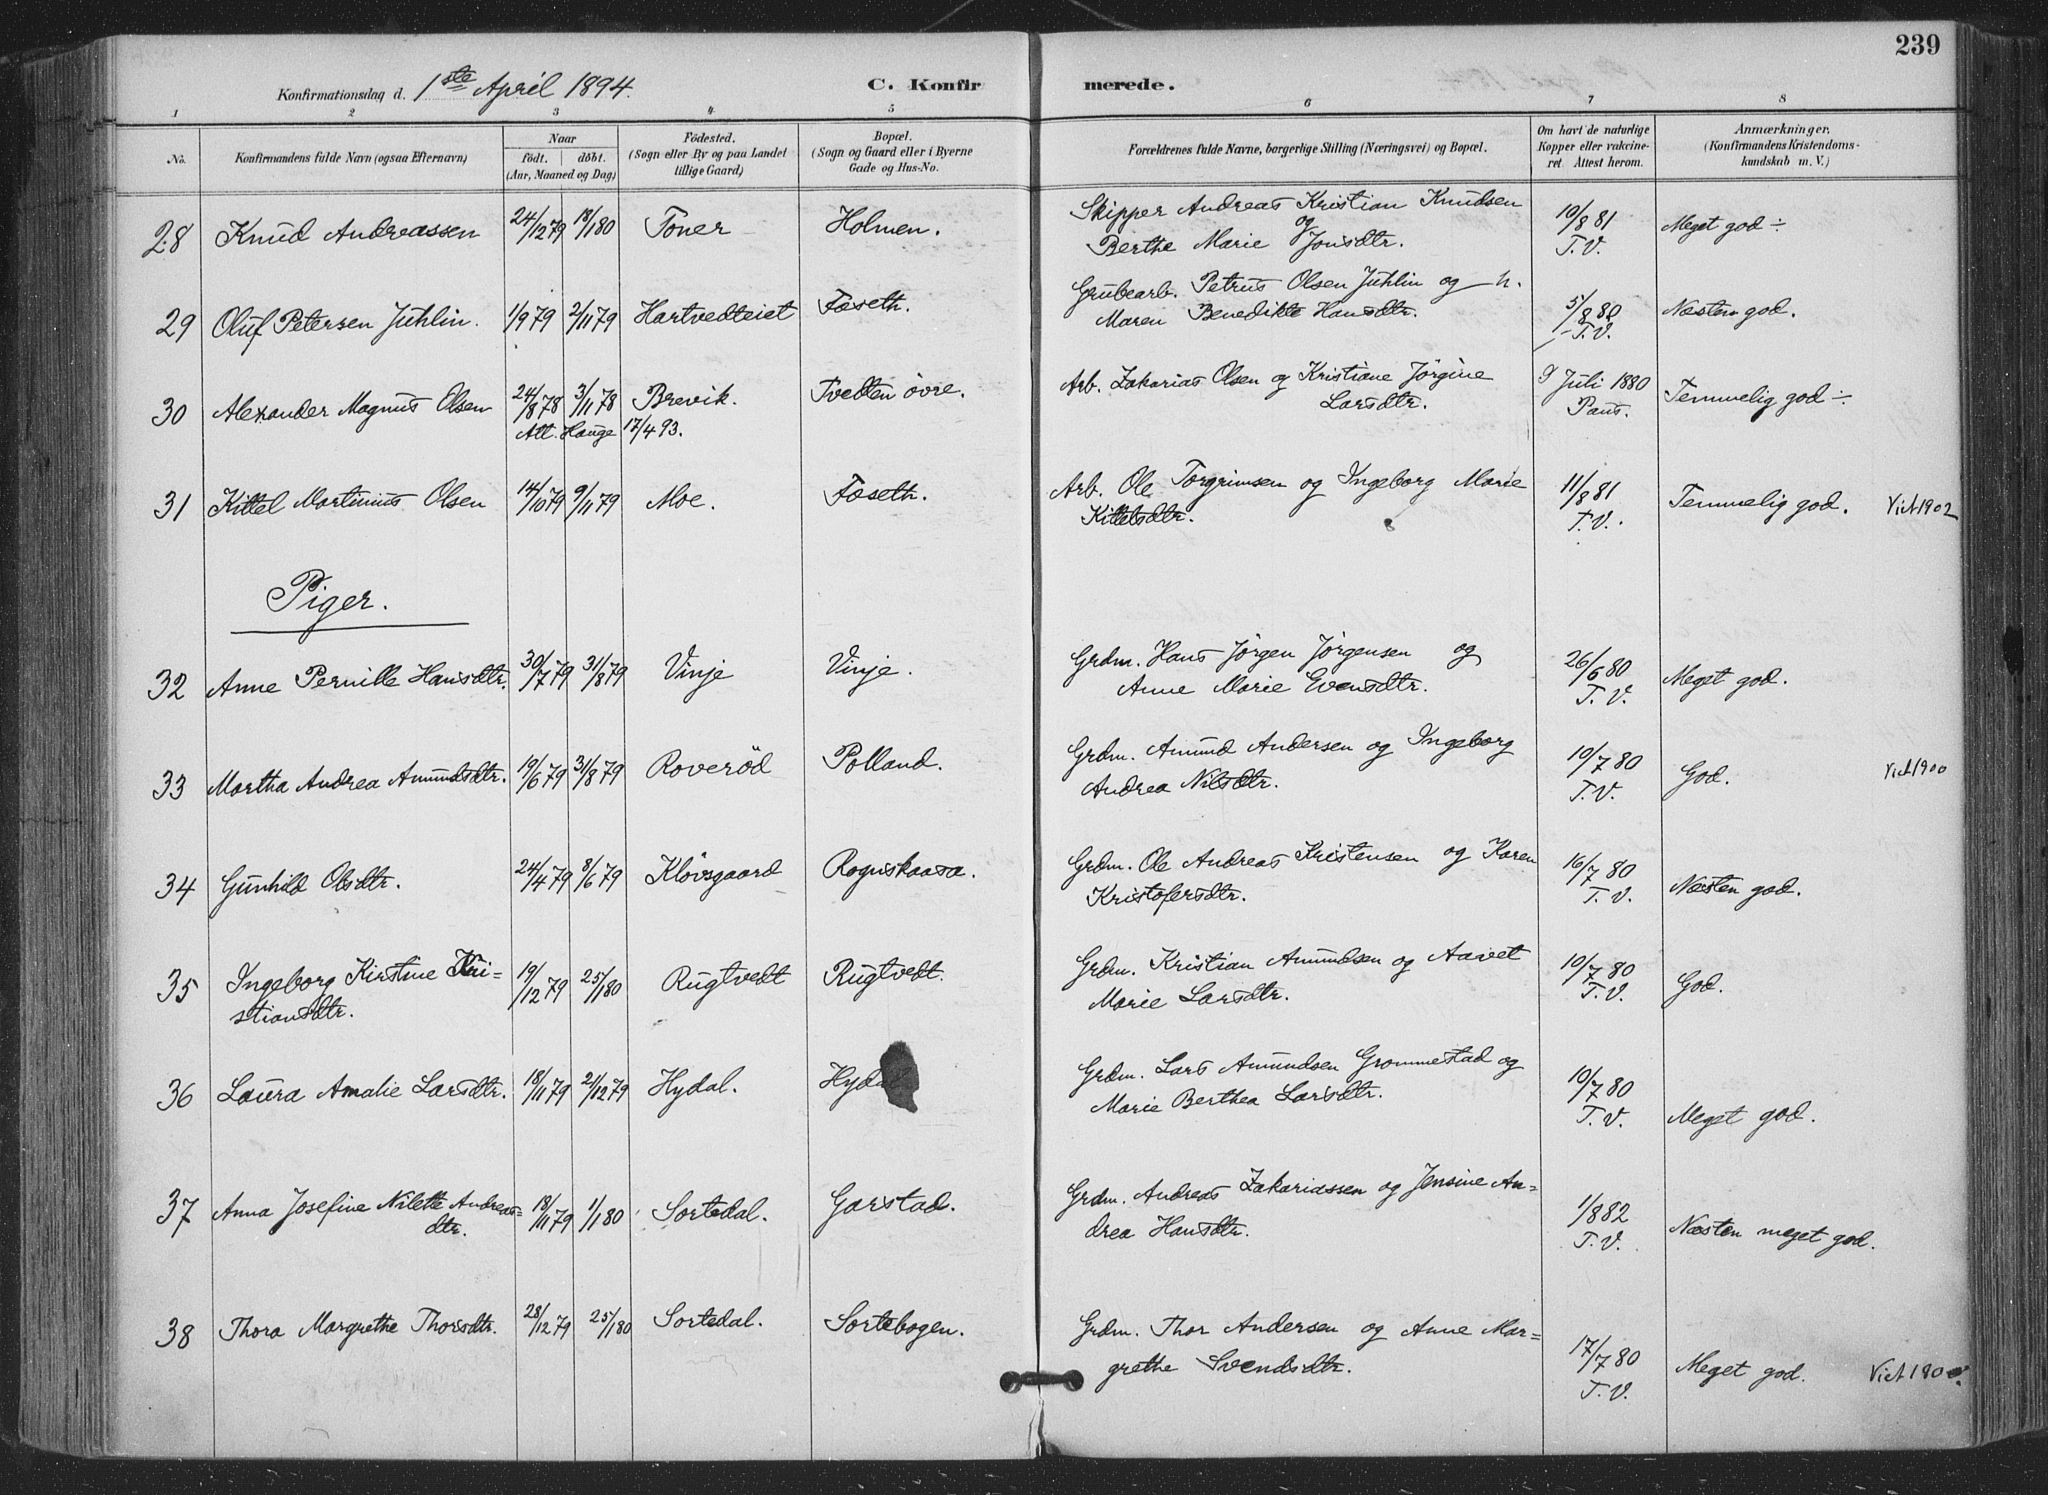 239
Konfirmationsdag d. 1ste April 1894. C. Konfirmerede.
1 2 3 4 5 6 7 8
No. Konfirmandens fulde Navn (ogsaa Efternavn) Naar født. døbt. (Aar, Maaned og Dag) Fødested. (Sogn eller By og paa Landet tillige Gaard) Bopæl. (Sogn og Gaard eller i Byerne Gade og Hus-No. Forældrenes fulde Navne, borgerlige Stilling (Næringsvei) og Bopæl. Om havt de naturlige Kopper eller vakcineret. Attest herom. Anmærkninger, (Konfirmandens Kristendomskundskab m. V.)
28 Knud Andreassen 24/12 79 18/1 80 Toner Holmen. Skipper Andreas Kristian Knudsen og Berthe Marie Jonsdtr. 10/8 81 T.V. Meget god ÷
29 Oluf Petersen Juhlin. 1/9 79 2/11 79 Hartvedteiet Foseth. Grubearb. Petrus Olsen Juhlin og h. Maren Benedikte Hansdtr. 5/8 80 T.V. Næsten god.
30 Alexander Magnus Olsen 24/8 78 3/11 78 Brevik. Tvedten övre. Arb. Zakarias Olsen og Kristiane Jörgine Larsdtr. 9 Juli 1880 Paus. Temmelig god ÷
Att. Hauge 17/4 93.
31 Kittel Martinius Olsen 14/10 79 9/11 79 Moe. Foseth. Arb. Ole Torgrimsen og Ingeborg Marie Kittelsdtr. 11/8 81 T.V. Temmelig god. Viet 1902
Piger.
32 Anne Pernille Hansdtr. 30/7 79 31/8 79 Vinje Vinje. Grdm. Hans Jörgen Jörgensen og Anne Marie Evensdtr. 26/6 80 T.V. Meget god.
33 Martha Andrea Amundsdtr. 19/6 79 31/8 79 Roveröd Polland. Grdm. Amund Andersen og Ingeborg Andrea Nilsdtr. 10/7 80 T.V. God. Viet 1900
34 Gunhild Olsdtr. 24/4 79 8/6 79 Klövsgaard Rognskaasa. Grdm. Ole Andreas Kristensen og Karen Kristofersdtr. 16/7 80 T.V. Næsten god.
35 Ingeborg Kirstine Kristiansdtr. 19/12 79 25/1 80 Rugtvedt Rugtvedt. Grdm. Kristian Amundsen og Aavet Marie Larsdtr. 10/7 80 T.V. God.
36 Laura Amalie Larsdtr. 18/11 79 2/12 79 Hydal. Hyda Grdm. Lars Amundsen Grommestad og Marie Berthea Larsdtr. 10/7 80 T.V. Meget god.
37 Anna Josefine Nilette Andreasdtr. 18/11 79 1/1 80 Sortedal. Garstad. Grdm. Andreas Zakariassen og Jensine Andrea Hansdtr. 1/8 82 T.V. Næsten meget god.
38 Thora Margrethe Thorsdtr. 28/12 79 25/1 80 Sortedal. Sortebogen. Grdm. Thor Andersen og Anne Margrethe Svendsdtr. 17/7 80 T.V. Meget god. Viet 190